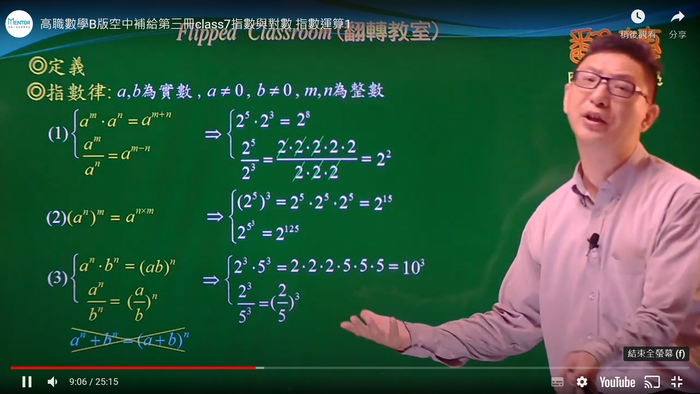 MENTOR
高職數學B版空中補給第三冊class7指數與對數_指數運算1
稍後觀看
分享
Flipped Classroom (翻轉教室)
◎定義
◎指數律: a,b為實數 , a ≠ 0 , b ≠ 0 , m,n為整數
(1) { aᵐ · aⁿ = aᵐ⁺ⁿ ⇒ { 2⁵ · 2³ = 2⁸
aᵐ/aⁿ = aᵐ⁻ⁿ 2⁵/2³ = 2·2·2·2·2/2·2·2 = 2²
(2) (aⁿ)ᵐ = aⁿˣᵐ ⇒ { (2⁵)³ = 2⁵ · 2⁵ · 2⁵ = 2¹⁵
2^5³ = 2¹²⁵
(3) { aⁿ · bⁿ = (ab)ⁿ ⇒ { 2³ · 5³ = 2·2·2·5·5·5 = 10³
aⁿ/bⁿ = (a/b)ⁿ 2³/5³ = (2/5)³
aⁿ + bⁿ = (a+b)ⁿ
結束全螢幕 (f)
9:06 / 25:15
YouTube